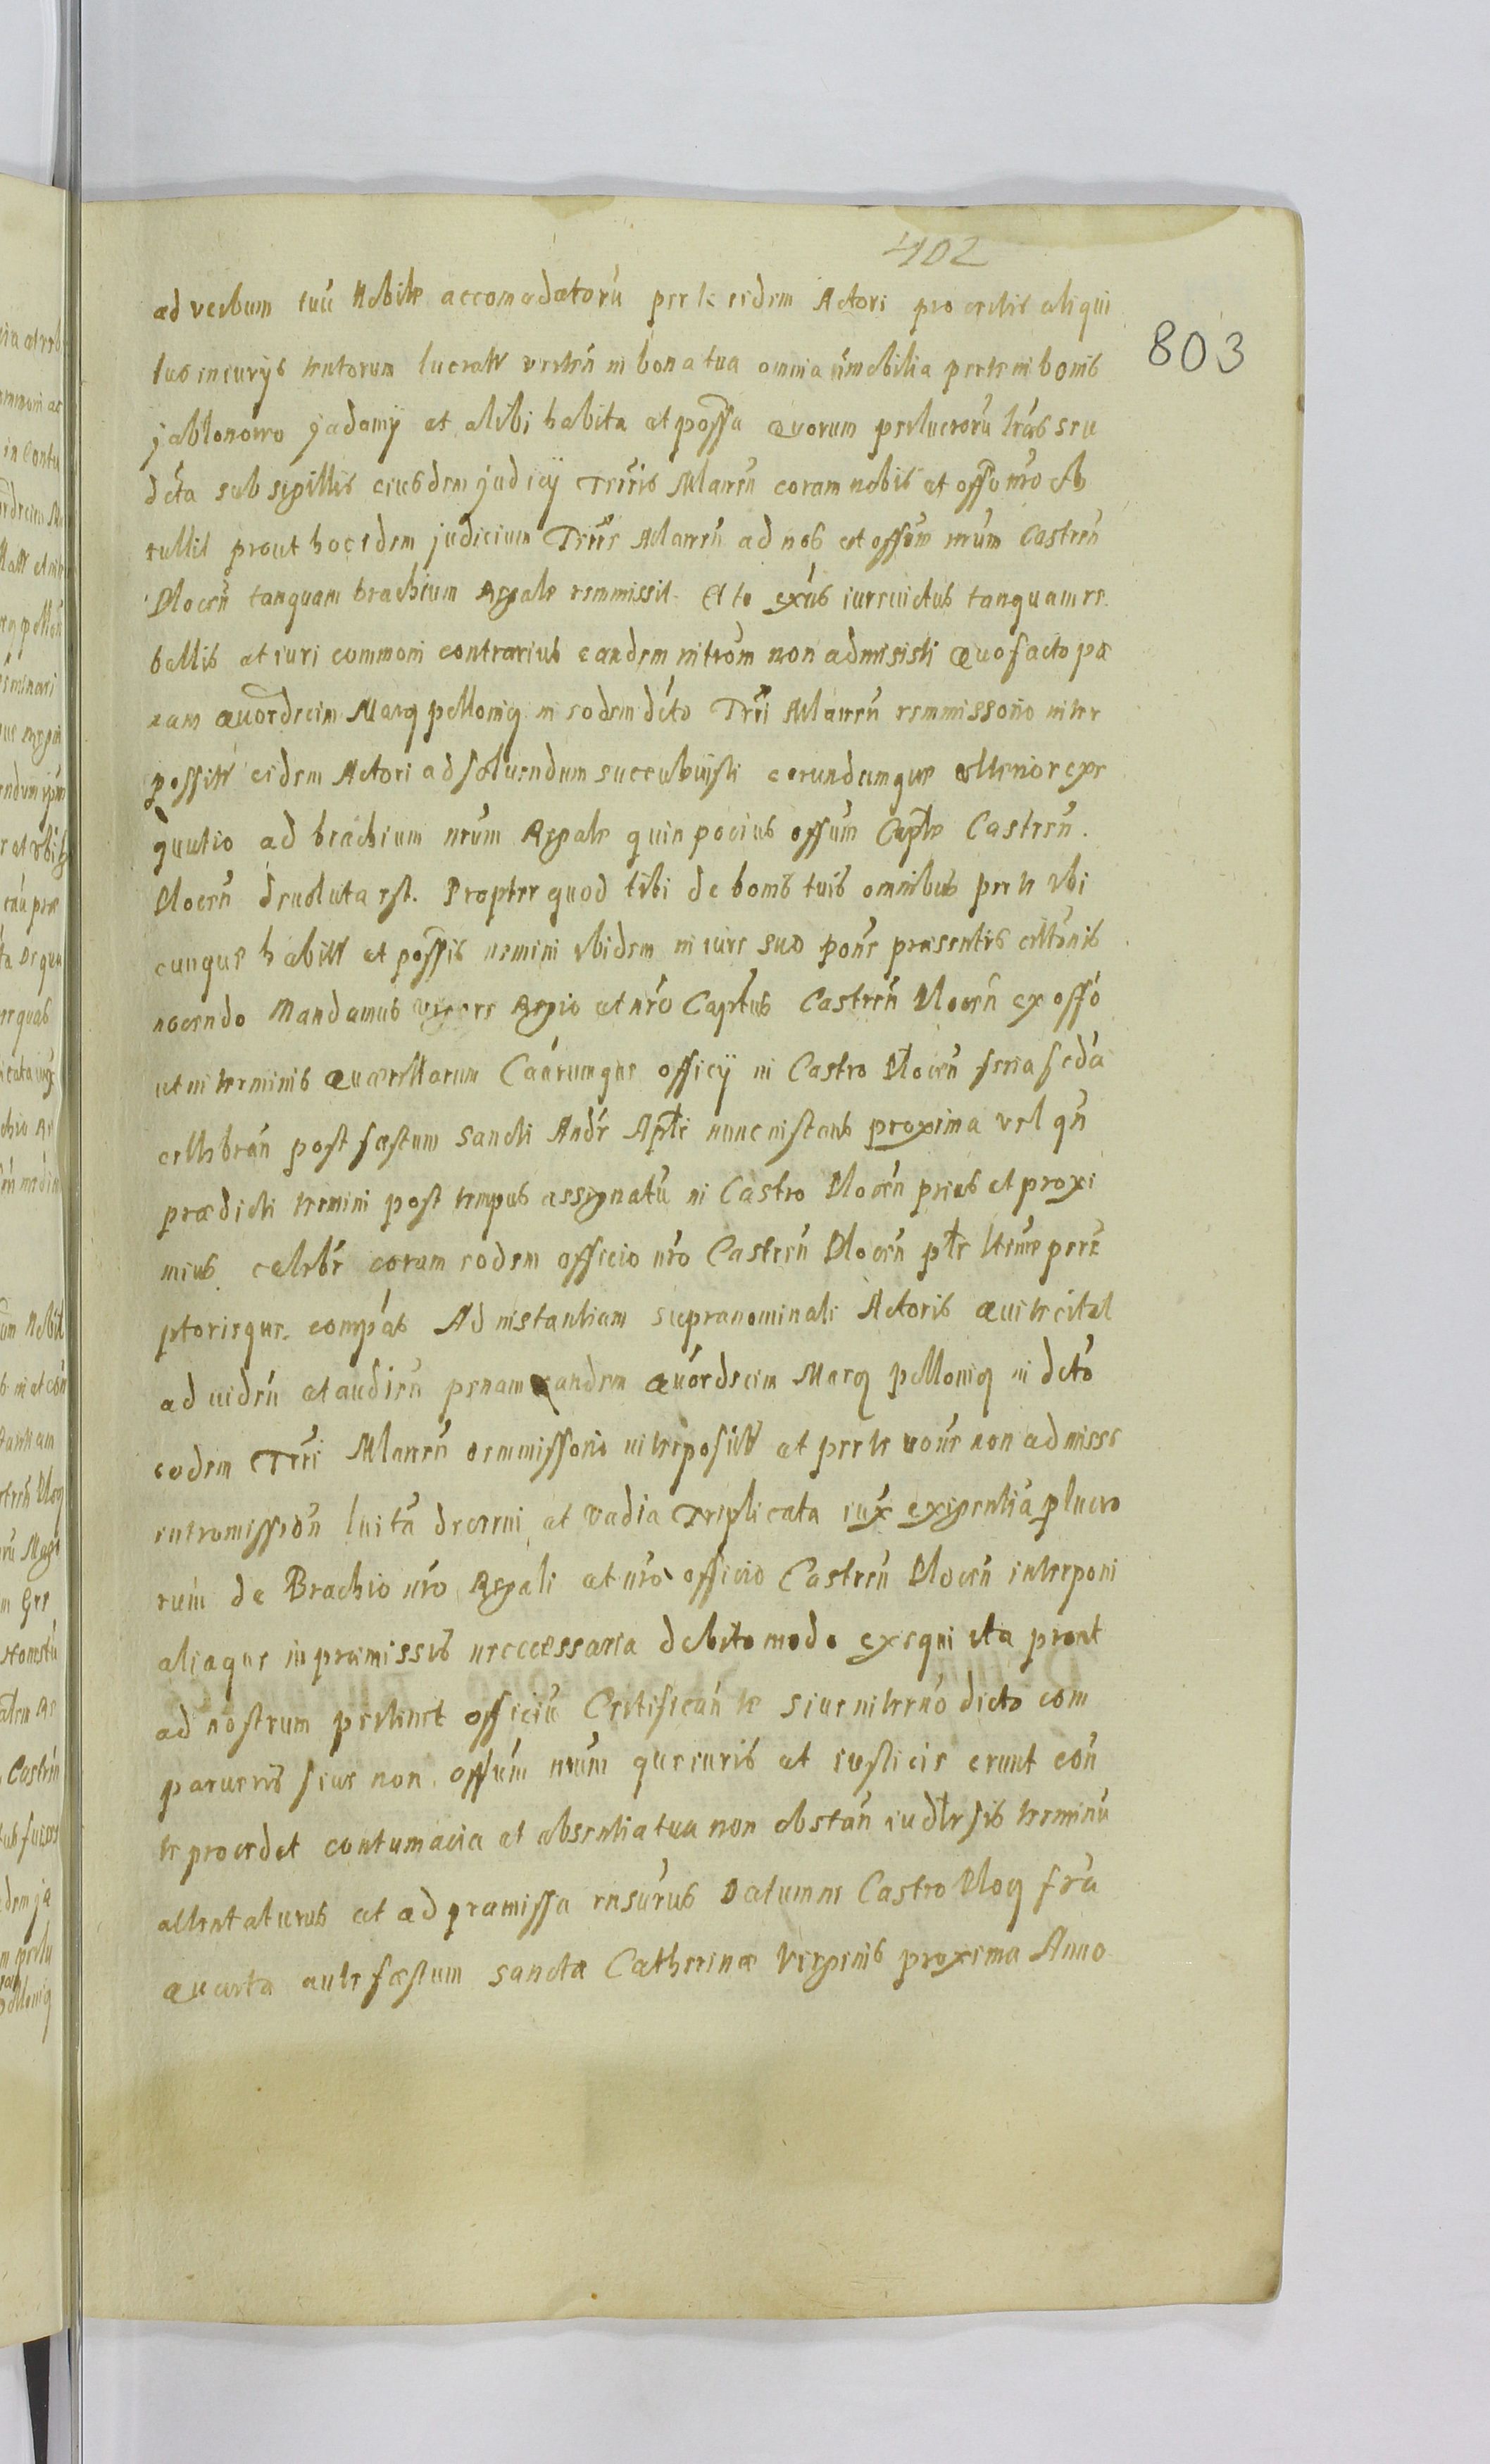 402
803
ad verbum tuu Nobile accomodatoru per te eidem Actori pro certis aliqui
bus iniurijs tentorum lucratt vertẽn in bona tua omnia immobilia per te in bonis
jablonowo jadamij et alibi habita et possa quorum perlucroru lras seu
dcta sub sigillis eiusdem judicij Trris Mlawen coram nobis et offo nro ob
tullit prout hoc idem judicium Trre Mlawen ad nos et offum nrum Castren
Plocen tanquam brachium Regale remmissit Et te exns iureuictus tanquam re
bellis et iuri commoni contrarius eandem intrõm non admisisti quo facto pæ
nam quordecim Marq pellioniq in eodem dcto Trri Mlawen remmissorio inter
possitt eidem Actori ad soluendum succubuisti eorundemque vlterior exe
quutio ad brachium nrum Regale quin pocius offum Capte Castren
Plocen deuoluta est. Propter quod tibi de bonis tuis omnibus per te vbi
cunque habitt et possis nemini ibidem in iure suo pone præsentis citonis
nocendo Mandamus vigore Regio et nro Captus Castren Plocen ex offo
ut in terminis quærellarum Caarumque officij in Castro Plocen feria scda
cellebran post festum Sancti Andr Apli nunc instans proxima vel qn
prædicti termini post tempus assignatu in Castro Plocen prius et proxi
mius celebr coram eodem officio nro Castren Plocen plr ltme perē
ptorieque compas Ad instantiam supranominati Actoris qui te citat
ad uiden et audien penam eandem quordecim Marq pellioniq in dcto
eodem Trri Mlawen remmissorio interpositt et per te rone non admisse
intromission luita decerni et vadia Triplicata iux exigentia plucro
rum de Brachio nro Regali et nro officio Castren Plocen interponi
aliaque in præmissis neccessaria debito modo exequi ita prout
ad nostrum pertinet officiu Certifican te siue in terno dicto com
parueris siue non offum nrum que iuris et iusticie erunt con
te procedet contumacia et absentia tua non obstan iudlr sis terminu
attentaturus et ad præmissa rnsurus Datum in Castro Ploq fria
quarta ante festum Sanctæ Catherinæ Virginis proxima Anno